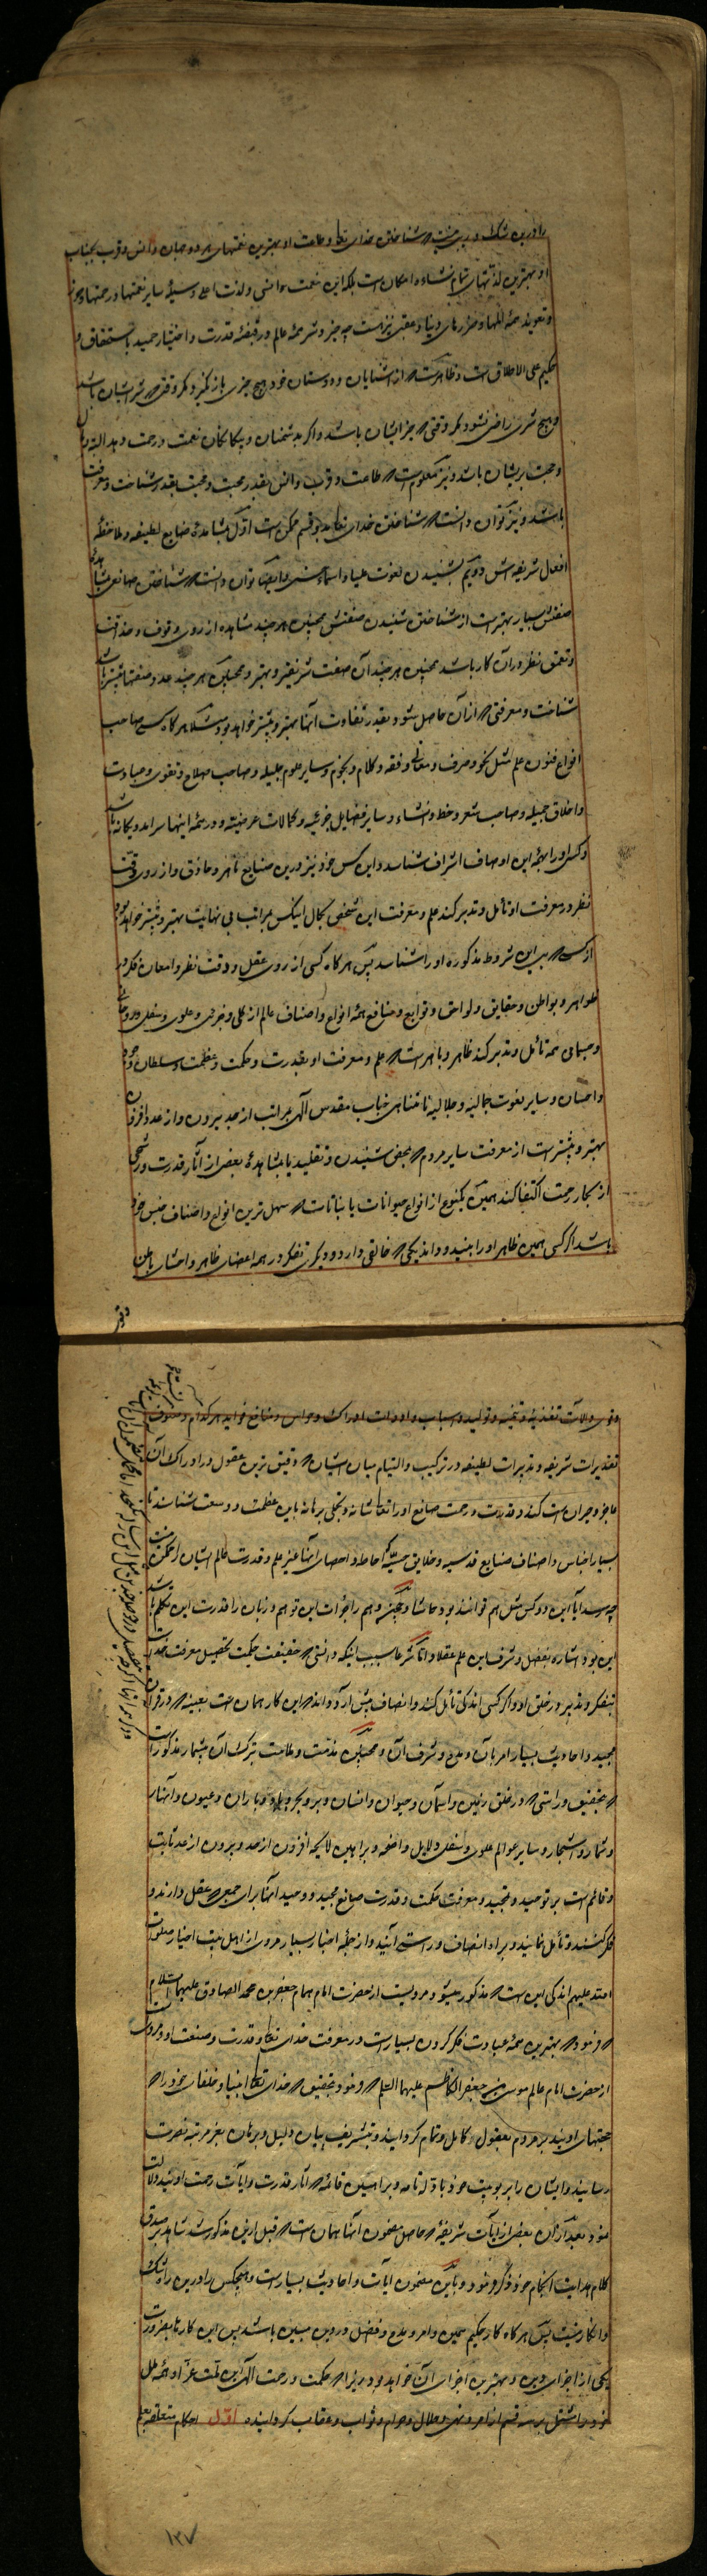 را درین شک و ریبی نیست که شناختن خدای تعا و طاعت او بهترین نعمتهای هر دو جهان و انس و قرب بجناب
او بهترین لذتهای تمام نشاه امکان است بلکه این نعمت و انس و لذت اعلی وسیلهٔ سایر نعمتها و رحمتها
و تعویذ همهٔ المها و ضررهای دنیا و عقبی نیز است چه خیر و شر همهٔ عالم در قبضهٔ قدرت و اختیار حمید با استحقاق و
حکیم علی الاطلاق است و ظاهر است که از آشنایان و دوستان خود هیچ چیزی باز نگیرد مگر وقتی که شر ایشان باشد
و بهیچ شری راضی نشود مگر وقتی که خیر ایشان باشد و اگر بدشمنان و بیگانگان نعمت و رحمت دهد البته
و حجت بریشان باشد و نیز معلوم است که طاعت و قرب و انس بقدر محبت و محبت بقدر شناخت و معرفت
باشد و نیز توان دانست که شناختن خدای تعا بدو قسم ممکن است اول بمشاهدهٔ صنایع لطیفه و ملاحظهٔ
افعال شریفه‌اش دویم بشنیدن نعوت علیا و اسماء حسنی و ایضا توان دانست که شناختن صانعی بمشاهدهٔ
صنعتش بسیار بهتر است از شناختن شنیدن صفتش همچنین هر چند مشاهده از روی وقوف و حذاقت
و تعمق نظر در آن کار باشد همچنین هر چند آن صنعت شریفتر و بهتر و همچنین هر چند عدد صنعتها بیشتر باشد
شناخت و معرفتی که از آن حاصل شود بقدر تفاوت آنها بهتر و بیشتر خواهد بود مثلا هر گاه کسی صاحب
انواع فنون علم مثل نحو و صرف و معانی و فقه و کلام و نجوم و سایر علوم جلیله و صاحب صلاح و تقوی و عبادت
و اخلاق جمیله و صاحب شعر و خط و انشاء و سایر فضایل جزئیه و کمالات عرضیه و در همهٔ اینها سرآمد و یگانه باشد
و کسی او را بجمله این اوصاف اشراف شناسد و این کس خود نیز درین صنایع ماهر و حاذق و از روی دقت
نظر در معرفت او تامل و تدبر کند علم و معرفت این شخص بحال آنکس بمراتب بی نهایت بهتر و بیشتر خواهد بود
از کسی که بی این شروط مذکوره او را شناسد پس هر گاه کسی از روی عقل و دقت نظر و امعان فکر در
ظواهر و بواطن و حقایق و لواحق و توابع و منافع همهٔ انواع و اصناف عالم از کلی و جزئی و علوی و سفلی و روحانی
و جسمانی همه تامل و تدبر کند ظاهر و باهر است که علم و معرفت او بقدرت و حکمت و عظمت و سلطان و جود
و احسان و سایر نعوت جمالیه و جلالیه نامتناهی جناب مقدس الهی بمراتب از حد بیرون و از عدد افزون
بهتر و بیشتر است از معرفت سایر مردم که بمحض شنیدن و تقلید یا بمشاهدهٔ بعضی از آثار قدرت و رشحی
از بحار رحمت اکتفا کند همین که یکنوع از انواع حیوانات یا نباتات که سهل ترین انواع و اصناف جنس خود
باشد اگر کسی همین ظاهر او را ببیند و داند یکی که خالقی دارد و دیگری تفکر در همه اعضای ظاهر و احشای باطن
وقوی
وقوی و آلات تغذیه و تنمیه و تولید و اسباب و ادوات ادراک و حواس و منافع فواید هر کدام و صنوف
تقدیرات شریفه و تدبیرات لطیفه در ترکیب و التیام میان ایشان که دقیق ترین عقول در ادراک آن
عاجز و حیران است کند و قدرت و رحمت صانع او را تعا شانه و تجلی برهانه باین عظمت و وسعت شناسد تا
بسیار اجناس و اصناف صنایع قدسیه و خلایق حسیه که احاطه و احصای آنها غیر علم و قدرت عالم ایشان را ممکن نیست
چه رسد آیا این دو کس مثل هم توانند بود حاشا و همچنین وهم را جرأت این توهم و زبان را قدرت این تکلم باشد
این بود اشاره بفضل و شرف این علم عقلا و اما شرعا بسبب اینکه دانستی که حقیقت حکمت تحصیل معرفت خداست
بتفکر و تدبر در خلق او و اگر کسی اندکی تامل کند و انصاف پیش آرد داند که این کار همان است بعینه که در قرآن
مجید و احادیث بسیار امر بآن و مدح و شرف آن و همچنین مذمت و ملامت بترک آن بیشمار مذکور است
که بتحقیق و راستی که در خلق زمین و آسمان و حیوان و انسان و بر و بحر و باد و باران و عیون و انهار
و ثمار و اشجار و سایر عوالم علوی و سفلی دلایل واضحه و براهین لایحه افزون از حد و بیرون از عد ثابت
و قائم است بر توحید و تمجید و معرفت حکمت و قدرت صانع مجید و وحید آنها برای جمعی که عقل دارند و
فکر کنند و تامل نمایند و براه انصاف و راستی آیند و از جملهٔ اخبار بسیار مروی از اهل بیت اخیار صلوات
الله علیهم اندکی این است که مذکور میشود مرویست از حضرت امام بهمام جعفر بن محمد الصادق علیهما السلام
که فرمود که بهترین همهٔ عبادت فکر کردن بسیار است در معرفت خدای تعا و قدرت و صنعت او و مرویست
از حضرت امام عالم موسی بن جعفر الکاظم علیهما السلام که فرمود بتحقیق که خدای تعا انبیا و خلفای خود را که
حجتهای اویند بر مردم بعقول کامل و تمام گردانید و بتشریف بیان و دلیل و برهان بعز مرتبه نصرت
رسانید و ایشان را بربوبیت خود بادلهٔ تامه و براهین قائمه که آثار قدرت و آیات رحمت اویند دلالت
نمود بعد از آن بعضی از آیات شریفه که حاصل مضمون آنها همان است که قبل ازین مذکور شد شاهد صدق
کلام هدایت انجام خود ذکر فرمود و باین مضمون آیات و احادیث بسیار است و هیچکس را درین راه شک
و انکار نیست پس هر گاه کار حکیم همین و امر و مدح و فضل در دین مبین باشد پس این کار تا بضرورت
یکی از اجزای دین و بهترین اجزای آن خواهد بود زیرا که حکمت و رحمت الهی این ملت غرا و همه ملل
خود را مشتمل بر سه قسم از امر و نهی و حلال و حرام و ثواب و عقاب گردانیده اول احکام متعلقه بعلم
۱۳۷